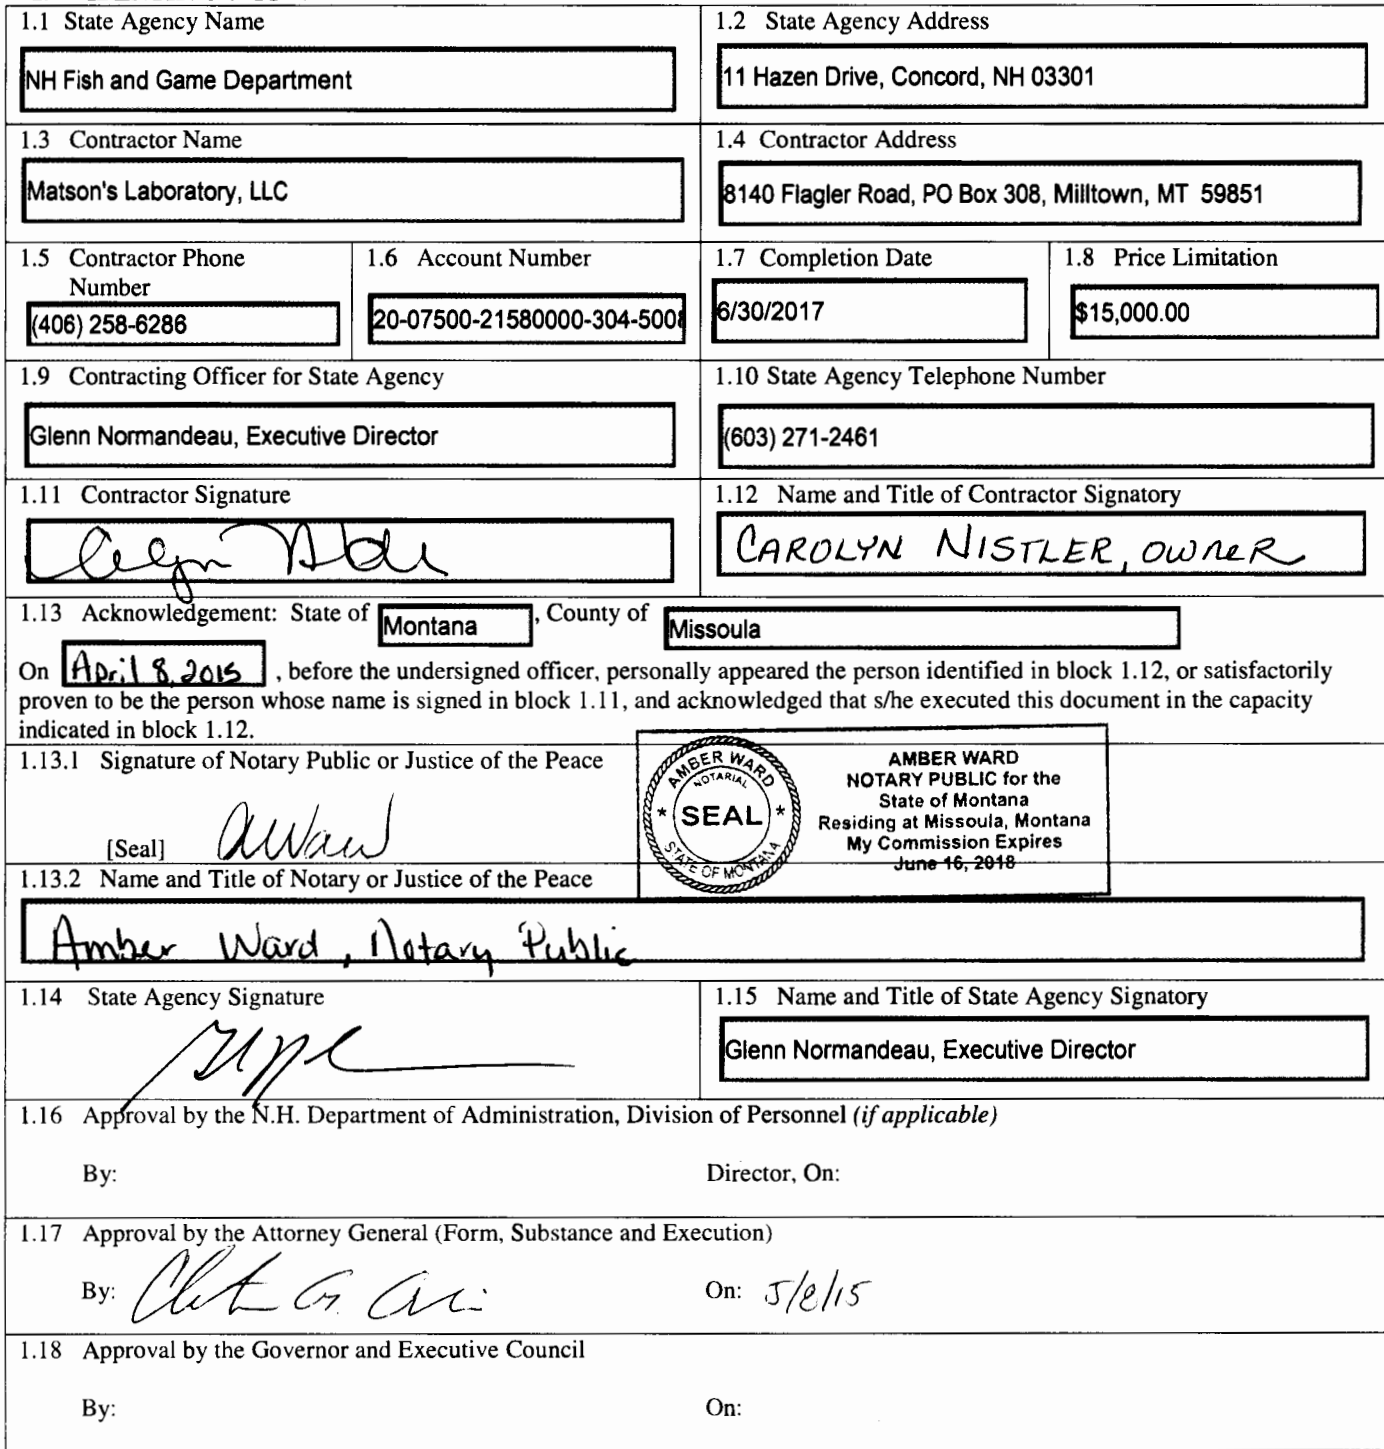 1.1 State Agency Name
NH Fish and Game Department
1.2 State Agency Address
11 Hazen Drive, Concord, NH 03301
1.3 Contractor Name
Matson's Laboratory, LLC
1.4 Contractor Address
8140 Flagler Road, PO Box 308, Milltown, MT 59851
1.5 Contractor Phone
Number
(406) 258-6286
1.6 Account Number
20-07500-21580000-304-500
1.7 Completion Date
6/30/2017
1.8 Price Limitation
$15,000.00
1.9 Contracting Officer for State Agency
Glenn Normandeau, Executive Director
1.10 State Agency Telephone Number
(603) 271-2461
1.11 Contractor Signature
1.12 Name and Title of Contractor Signatory
CAROLYN NISTLER, OWNER
1.13 Acknowledgement: State of Montana, County of Missoula
On April 8, 2015, before the undersigned officer, personally appeared the person identified in block 1.12, or satisfactorily
proven to be the person whose name is signed in block 1.11, and acknowledged that s/he executed this document in the capacity
indicated in block 1.12.
1.13.1 Signature of Notary Public or Justice of the Peace
[Seal] AWard
AMBER WARD
NOTARIAL
* SEAL *
STATE OF MONTANA
AMBER WARD
NOTARY PUBLIC for the
State of Montana
Residing at Missoula, Montana
My Commission Expires
June 16, 2018
1.13.2 Name and Title of Notary or Justice of the Peace
Amber Ward, Notary Public
1.14 State Agency Signature
1.15 Name and Title of State Agency Signatory
Glenn Normandeau, Executive Director
1.16 Approval by the N.H. Department of Administration, Division of Personnel (if applicable)
By: Director, On:
1.17 Approval by the Attorney General (Form, Substance and Execution)
By: On: 5/8/15
1.18 Approval by the Governor and Executive Council
By: On: